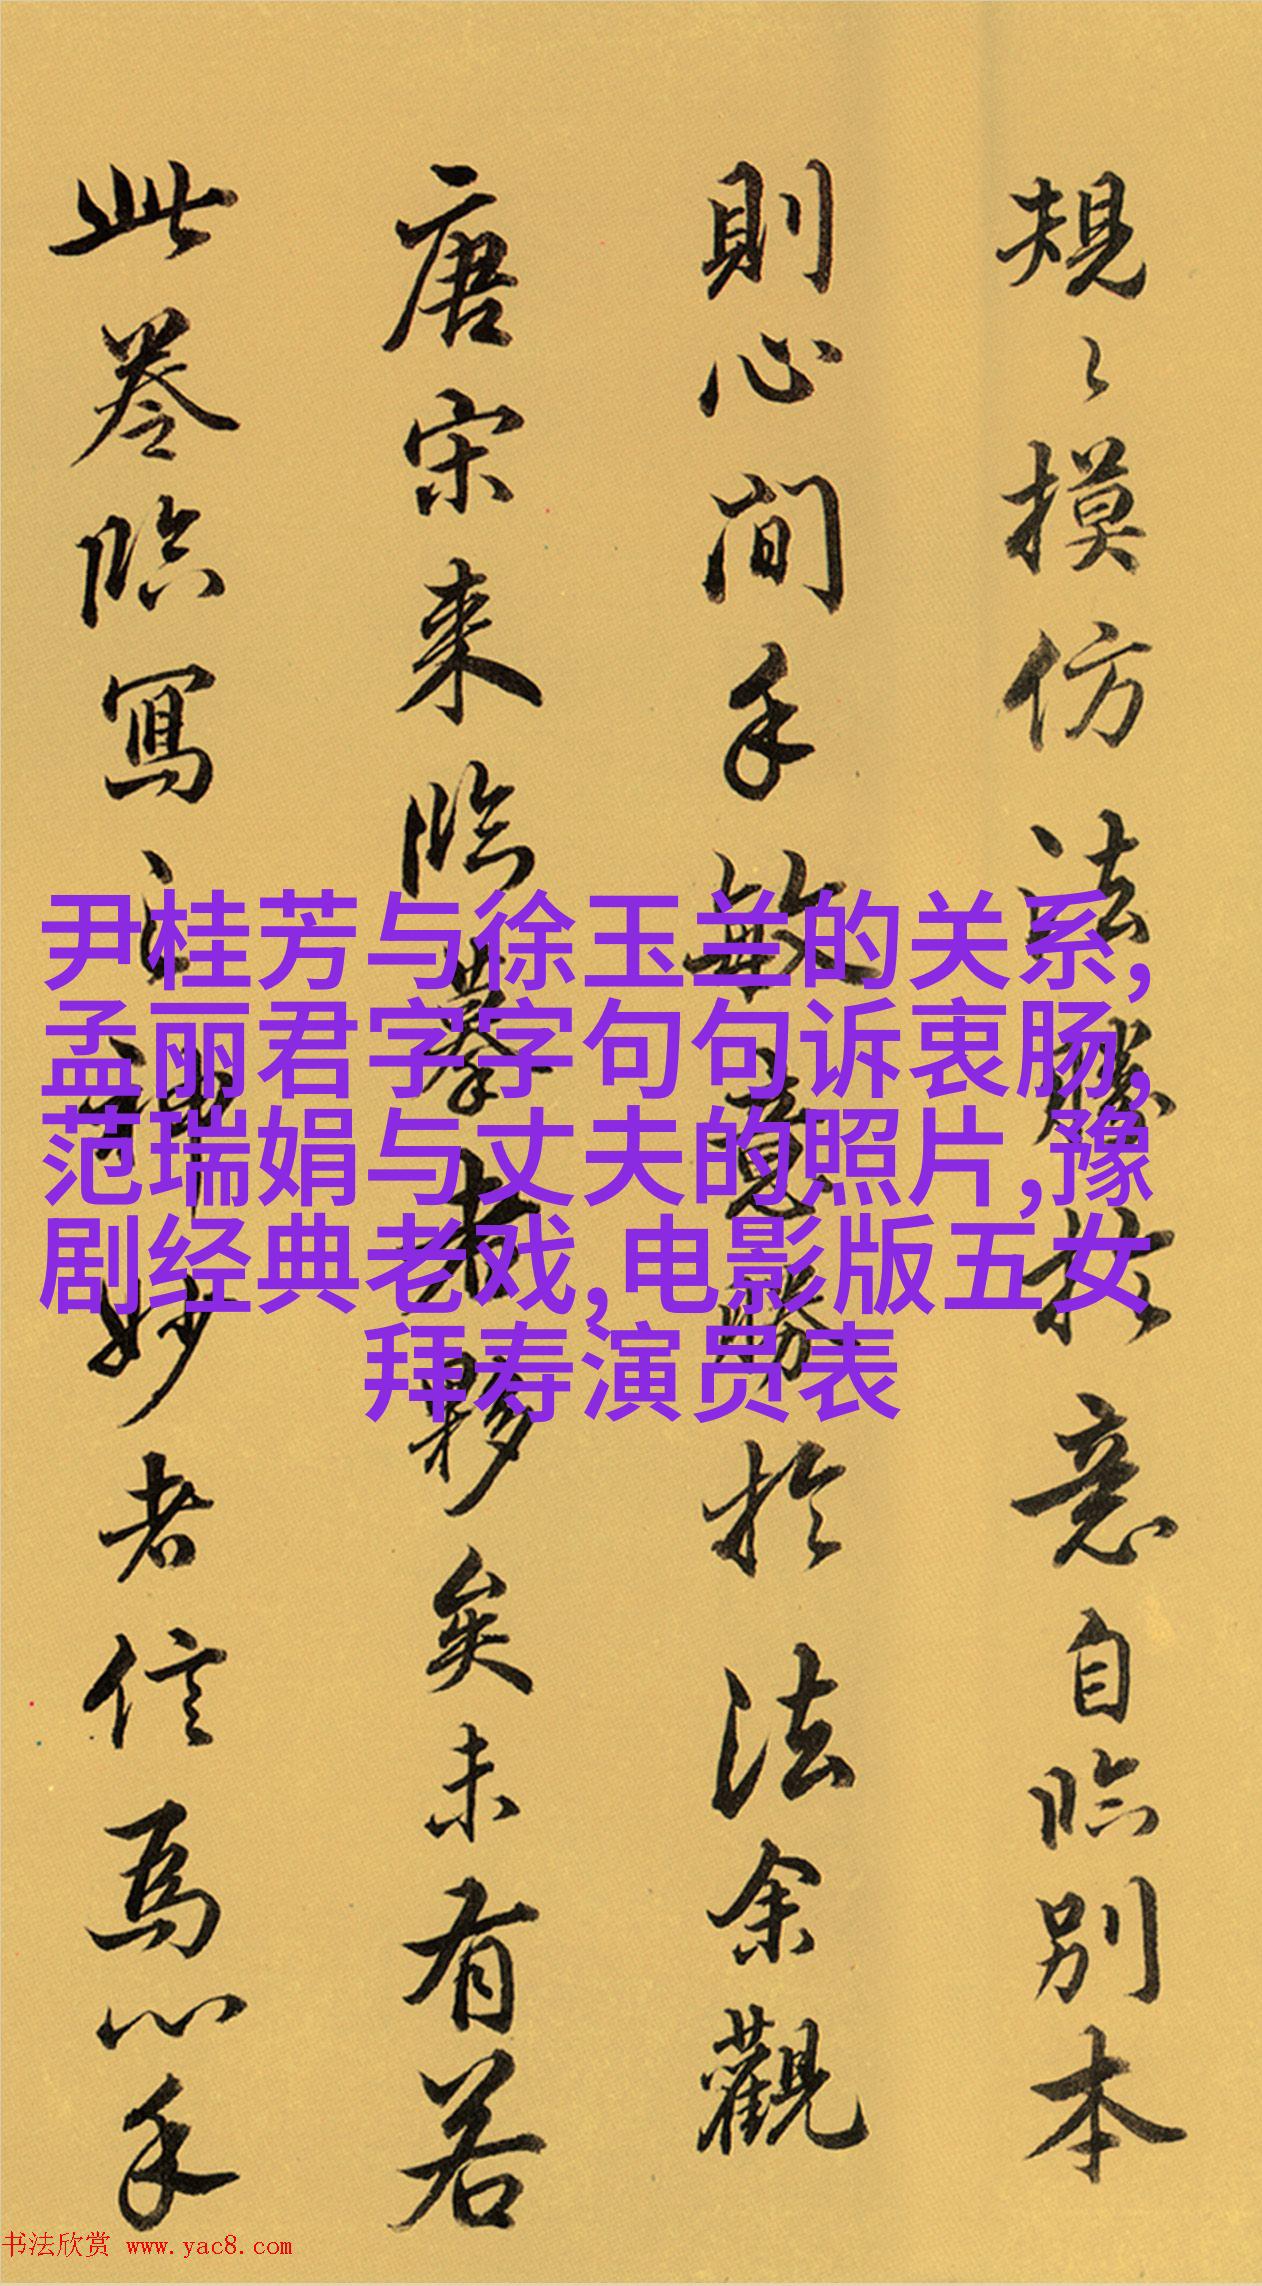 規〻摸仿法勝於意自臨別本
則心間手敏意勝於法余觀
唐宋来臨摹者夥矣未有若
此卷臨寫之神妙者信焉心手
尹桂芳与徐玉兰的关系,
孟丽君字字句句诉衷肠,
范瑞娟与丈夫的照片,豫
剧经典老戏,电影版五女
拜寿演员表
书法欣赏 www.yac8.com